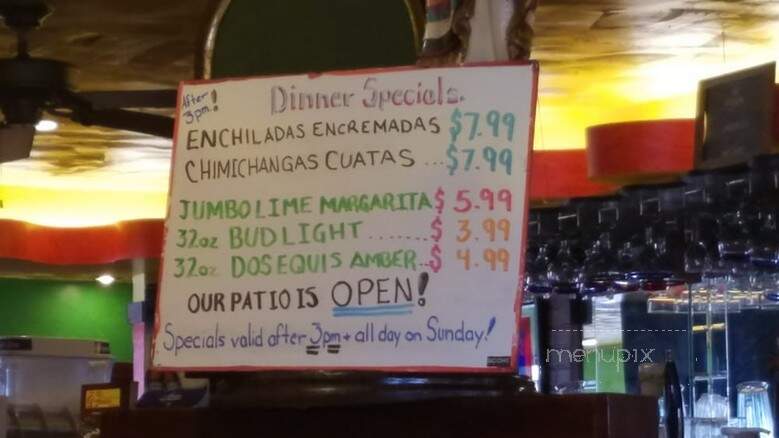 After
3pm!
Dinner Specials.
ENCHILADAS ENCREMADAS $7.99
CHIMICHANGAS CUATAS ... $7.99
JUMBO LIME MARGARITA $5.99
32oz BUD LIGHT ....... $3.99
32oz DOS EQUIS AMBER..$4.99
OUR PATIO IS OPEN!
Specials valid after 3pm + all day on Sunday!
menupix